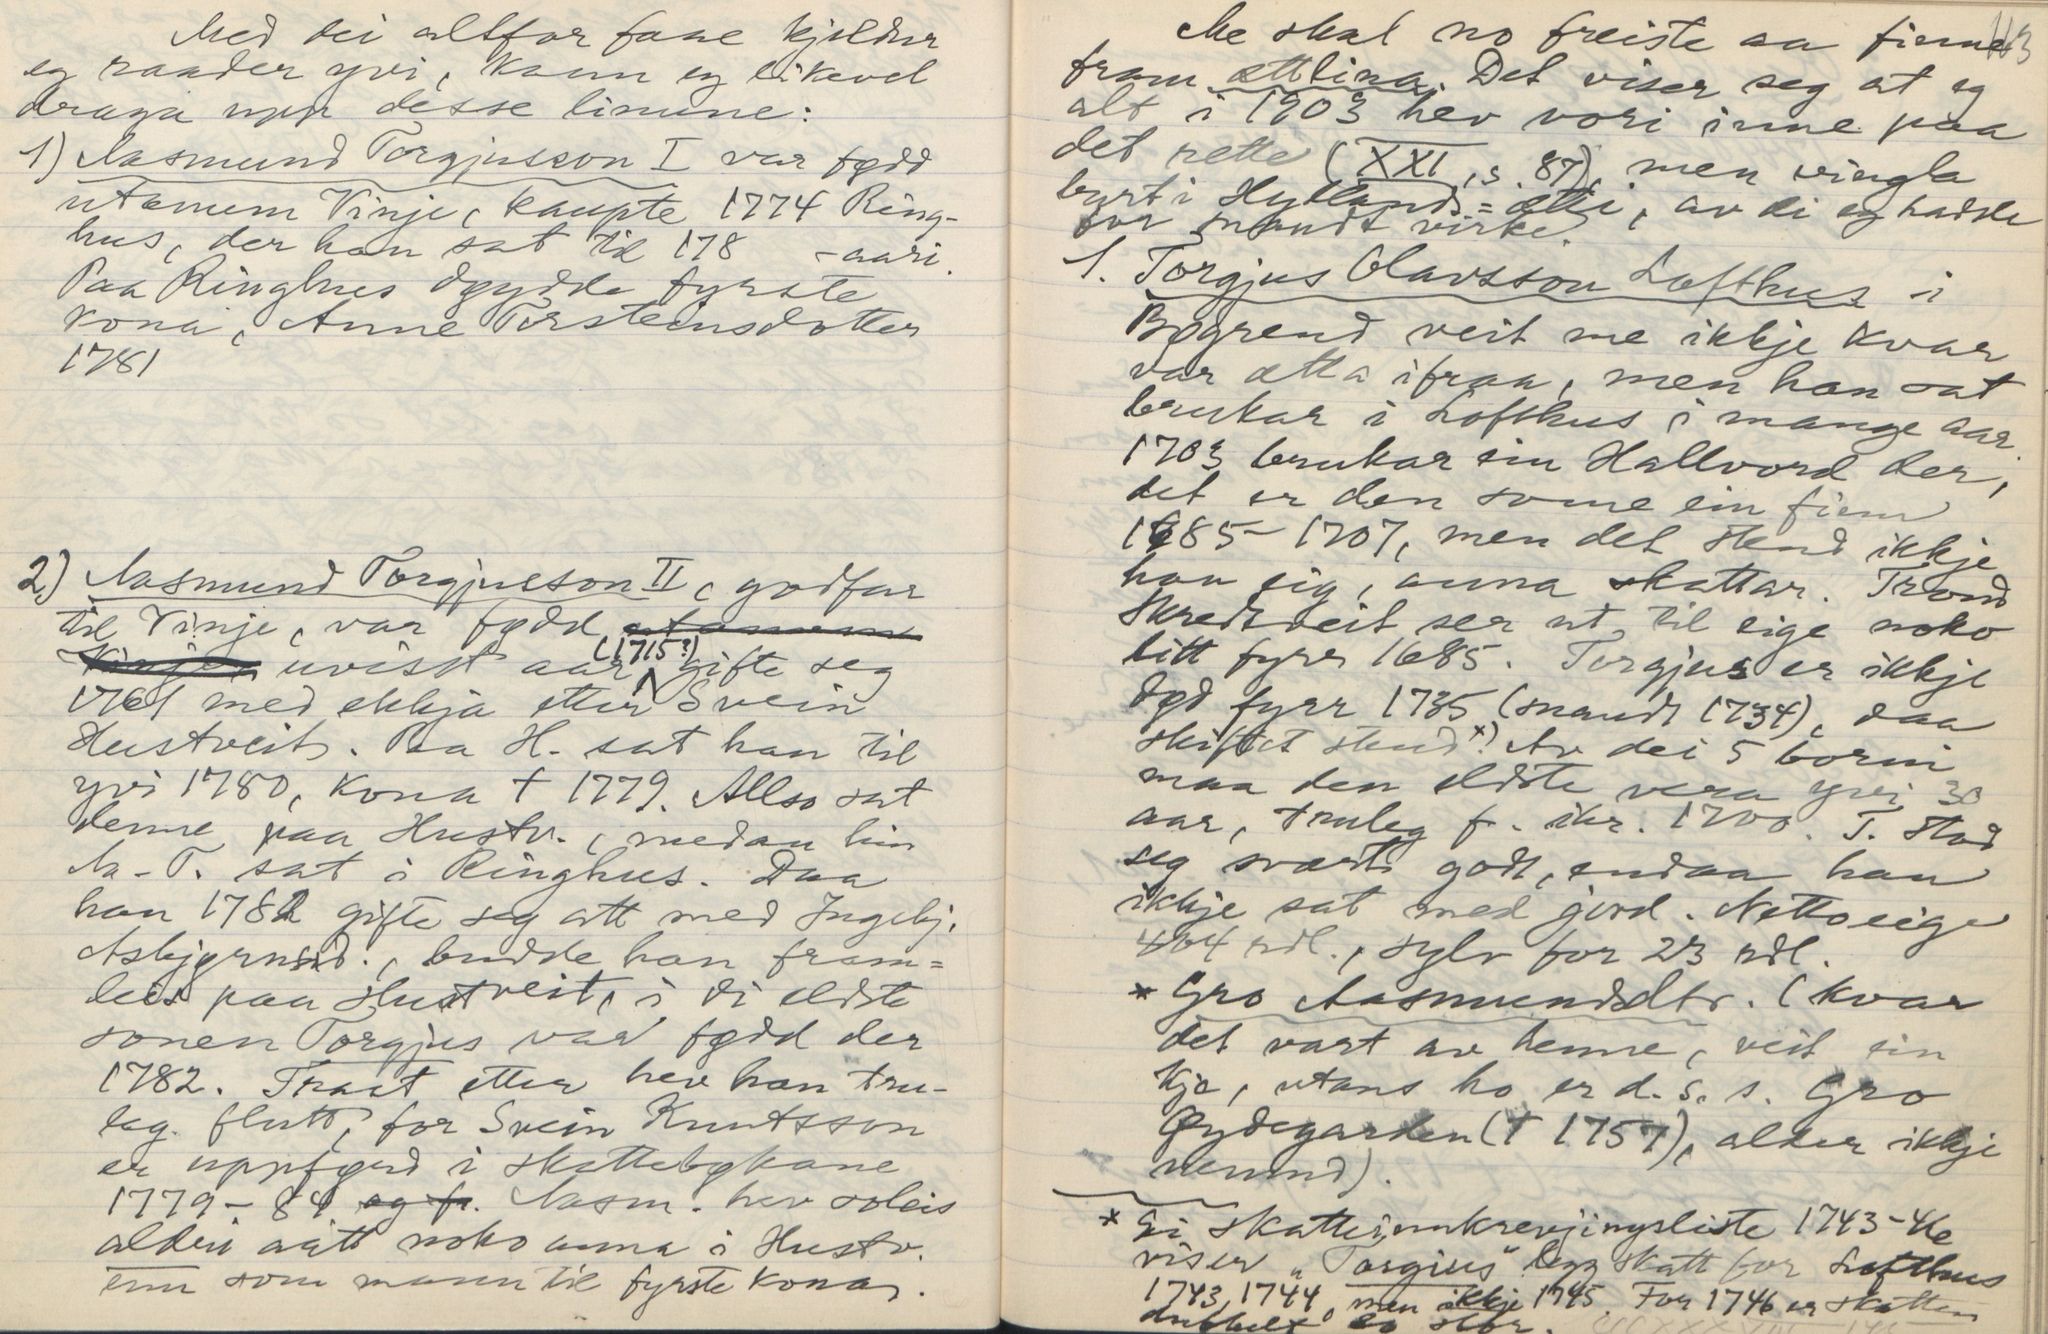 Med dei altfor faae kjeldur
eg raader yvi, kann eg likevel
draga upp desse linune:
1) Aasmund Torgjusson I var fødd
utanum Vinje, kaupte 1774 Ring-
hus, der han sat til 178 -aari.
Paa Ringhus døydde fyrste
kona, Anne Torsteinsdotter
1781
2) Aasmund Torgjusson II, godfar
til Vinje, var fødd utanum
Vinje, uvisst aar (1715?) gifte seg
1761 med ekkja etter Svein
Hustveit. Paa H. sat han til
yvi 1780, kona † 1779. Allso sat
denne paa Hustv., medan hin
Aa. T. sat i Ringhus. Daa
han 1782 gifte seg att med Ingebj.
Asbjørnsd., budde han fram=
leis paa Hustveit, i di eldste
sonen Torgjus var fødd der
1782. Trast etter hev han tru-
leg flutt, for Svein Knutsson
er uppførd i skattebøkane
1779-84 og fr. Aasm. hev soleis
aldri aatt noko anna i Hustv.
enn som mann til fyrste kona.
113
Me skal no freiste aa finne
fram ættlina. Det viser seg at eg
alt i 1903 hev vori inne paa
det rette (XXI, s. 87), men vingla
burt i Hyllands=ætti, av di eg hadde
for snaudt virke.
1. Torgjus Olavsson Lofthus i
Bøgrend veit me ikkje kvar
var ætta ifraa, men han sat
brukar i Lofthus i mange aar.
1703 brukar ein Hallvord der,
det er den some ein finn
1685-1707, men det stend ikkje
han eig, anna skattar. Trond
Skredtveit ser ut til eige noko
litt fyrr 1685. Torgjus er ikkje
død fyrr 1735 (snaudt 1734), daa
skiftet stend*) Av dei 5 borni
maa den eldste vera yvi 30
aar, truleg f. ikr. 1700. T. stod
seg svært godt, endaa han
ikkje sat med jord. Nettoeige
404 rdl., sylv for 23 rdl.
* Gro Aasmundsdtr. (kvar
det vart av henne, veit ein
kje, utans ho er d. s. s. Gro
Øydegarden († 1757), alder ikkje
nemnd).
* Ei skatteinnkrevjingsliste 1743-46
viser "Torgius" legg skatt for Lofthus
1743, 1744, men ikkje 1745. For 1746 er skatten
dubbelt so stor.